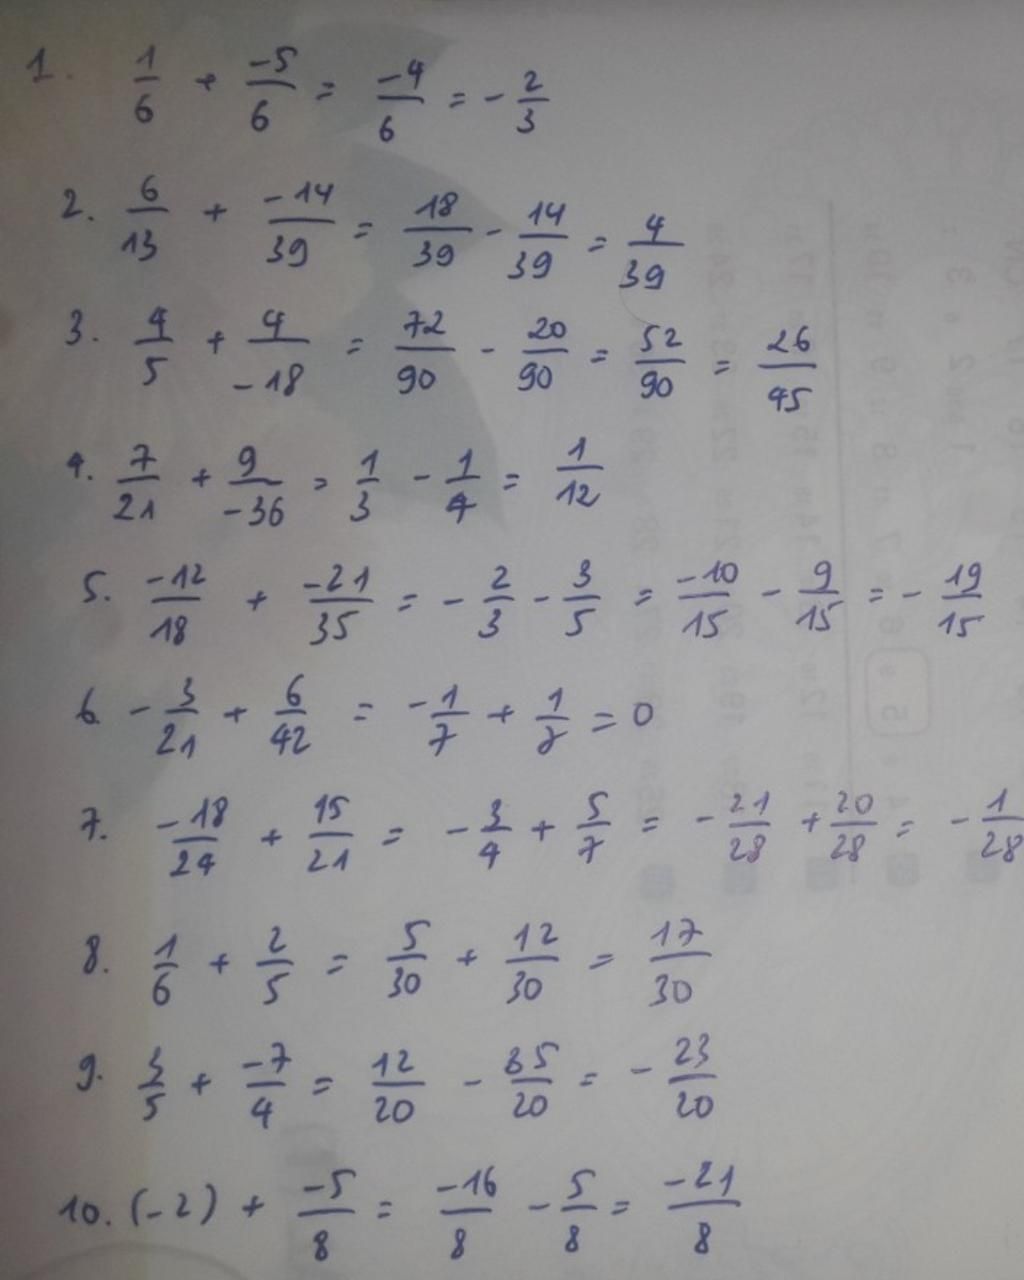 1. 1/6 + -5/6 = -4/6 = - 2/3
2. 6/13 + -14/39 = 18/39 - 14/39 = 4/39
3. 4/5 + 4/-18 = 72/90 - 20/90 = 52/90 = 26/45
4. 7/21 + 9/-36 = 1/3 - 1/4 = 1/12
5. -12/18 + -21/35 = - 2/3 - 3/5 = -10/15 - 9/15 = - 19/15
6. - 3/21 + 6/42 = - 1/7 + 1/7 = 0
7. -18/24 + 15/21 = - 3/4 + 5/7 = - 21/28 + 20/28 = - 1/28
8. 1/6 + 2/5 = 5/30 + 12/30 = 17/30
9. 3/5 + -7/4 = 12/20 - 35/20 = - 23/20
10. (-2) + -5/8 = -16/8 - 5/8 = -21/8